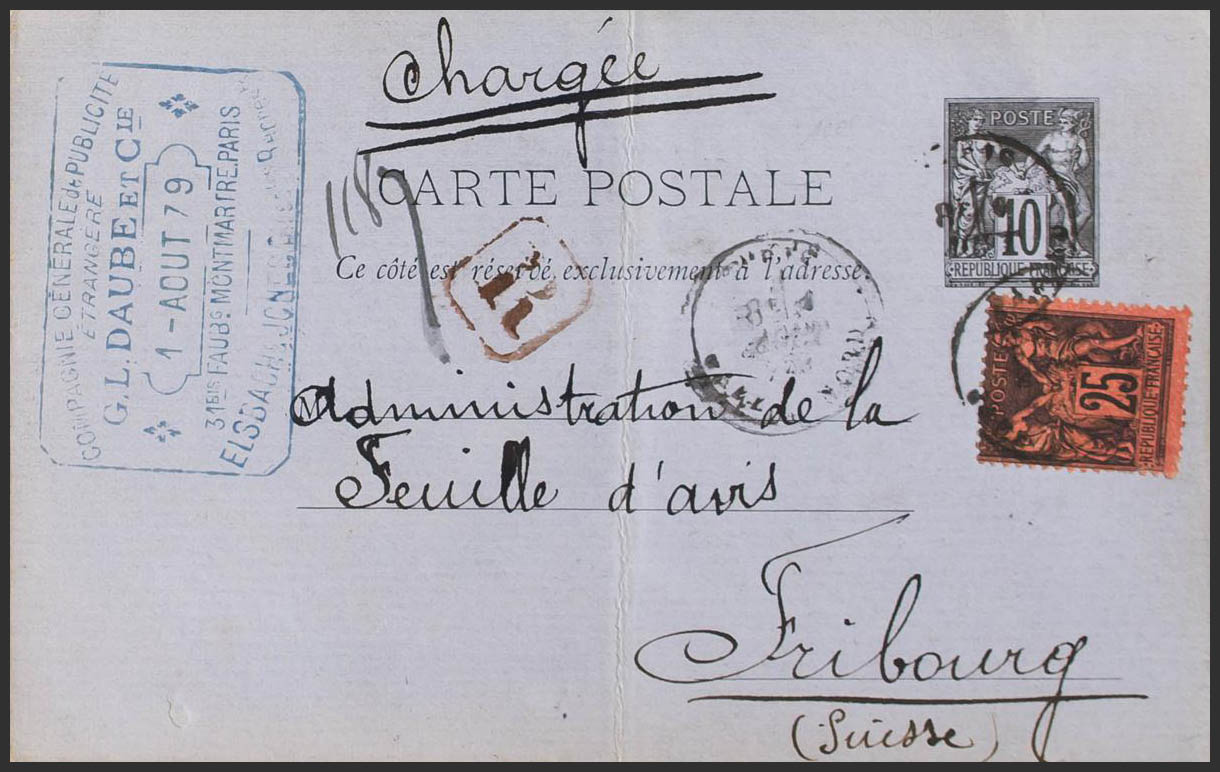 Chargée
COMPAGNIE GÉNÉRALE de PUBLICITÉ
ÉTRANGÈRE
G.L. DAUBE ET CIE
1 - AOUT 79
31BIS FAUBG MONTMARTRE. PARIS
ELSBACH, JONES
POSTE
10
REPUBLIQUE FRANÇAISE
CARTE POSTALE
Ce côté est réservé exclusivement à l'adresse.
R
POSTES
25
REPUBLIQUE FRANÇAISE
Administration de la
Feuille d'avis
Fribourg
(Suisse)